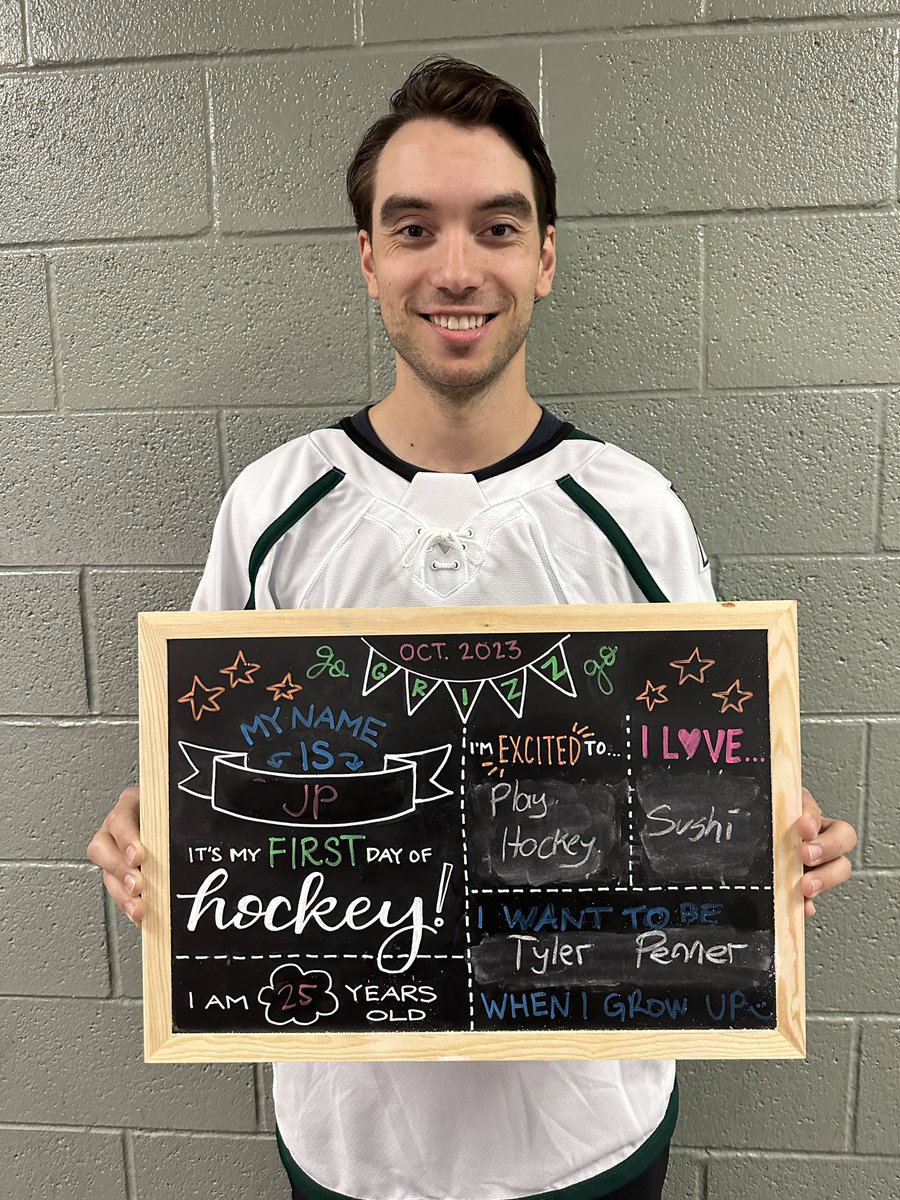 OCT. 2023
go GRIZZ go
MY NAME
IS
JP
IT'S MY FIRST DAY OF
hockey!
I AM 25 YEARS
OLD
I'M EXCITED TO...
Play
Hockey
I L♥VE...
Sushi
I WANT TO BE
Tyler Penner
WHEN I GROW UP